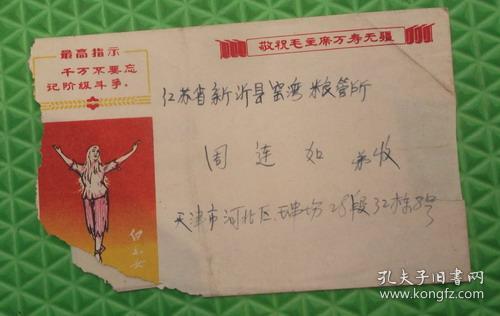 敬祝毛主席万寿无疆
最高指示
千万不要忘
记阶级斗争。
江苏省新沂县窑湾粮管所
周连如 收
天津市河北区 28段32栋8号
白毛女
孔夫子旧书网
www.kongfz.com